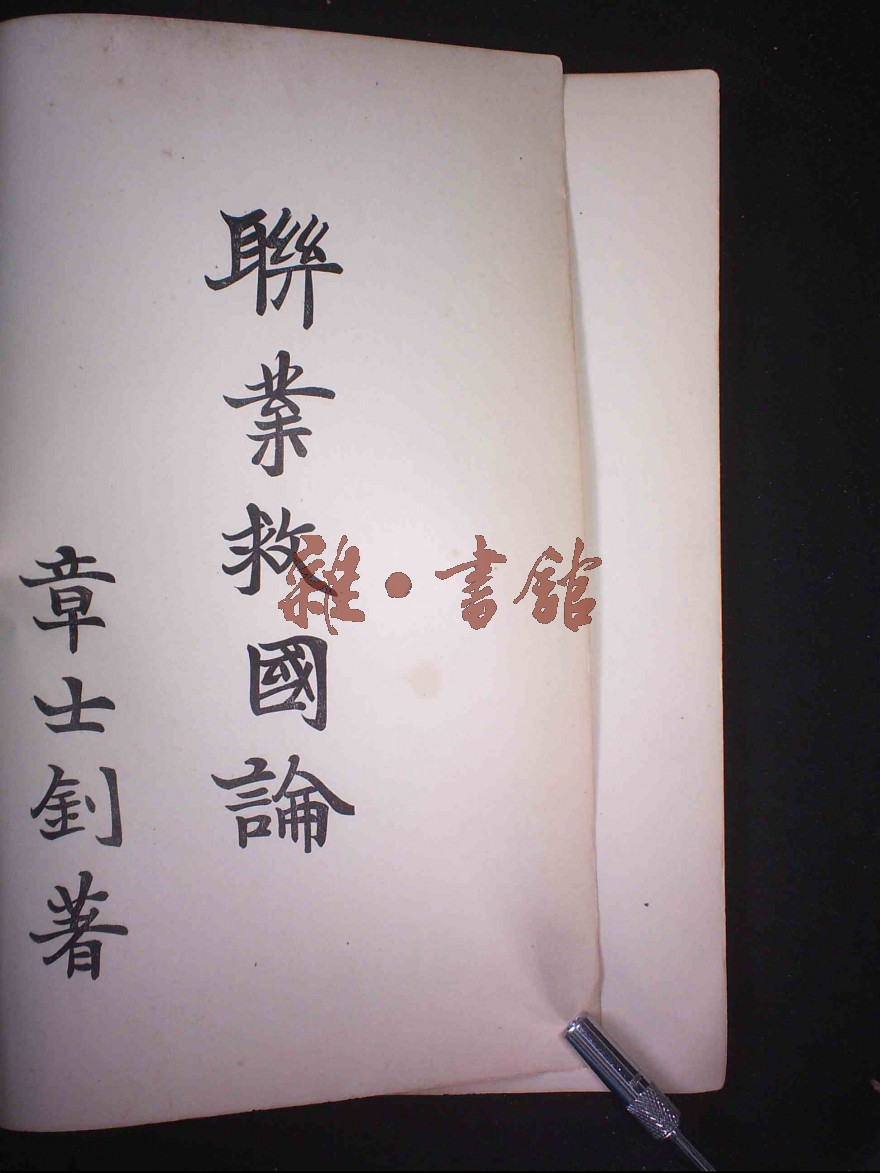 聯業救國論
章士釗著
雜·書館